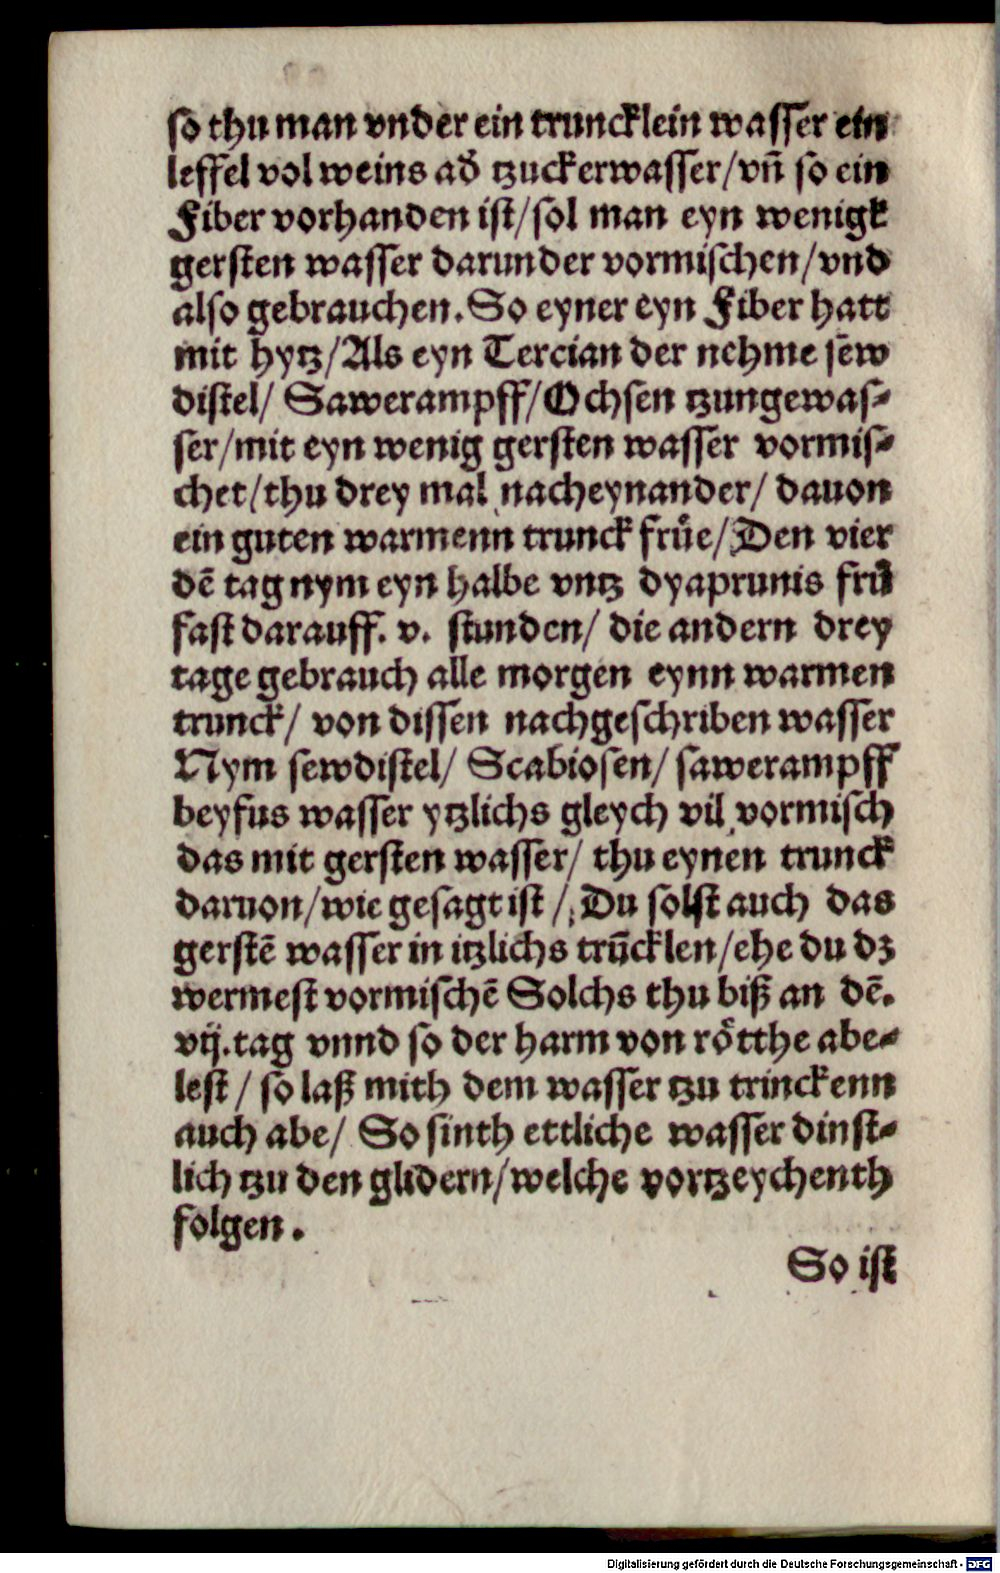 so thu man vnder ein truncklein wasser ein
leffel vol weins ad̄ tzuckerwasser/vn̄ so ein
Fiber vorhanden ist/sol man eyn wenigk
gersten wasser darunder vormischen/vnd
also gebrauchen. So eyner eyn Fiber hatt
mit hytz/Als eyn Tercian der nehme sew
distel/ Sawerampff/Ochsen tzungewas-
ser/mit eyn wenig gersten wasser vormis-
chet/thu drey mal nacheynander/ dauon
ein guten warmenn trunck frůe/Den vier
dē tag nym eyn halbe vntz dyaprunis frů
fast darauff. v. stunden/ die andern drey
tage gebrauch alle morgen eynn warmen
trunck/ von dissen nachgeschriben wasser
Nym sewdistel/ Scabiosen/ sawerampff
beyfus wasser ytzlichs gleych vil vormisch
das mit gersten wasser/ thu eynen trunck
daruon/wie gesagt ist/ Du solst auch das
gerstē wasser in itzlichs trūcklen/ehe du dz
wermest vormischē Solchs thu biß an dē.
vij.tag vnnd so der harm von rötthe abe-
lest/ so laß mith dem wasser tzu trinckenn
auch abe/ So sinth ettliche wasser dinst-
lich tzu den glidern/welche vortzeychenth
folgen.
So ist
Digitalisierung gefördert durch die Deutsche Forschungsgemeinschaft - DFG